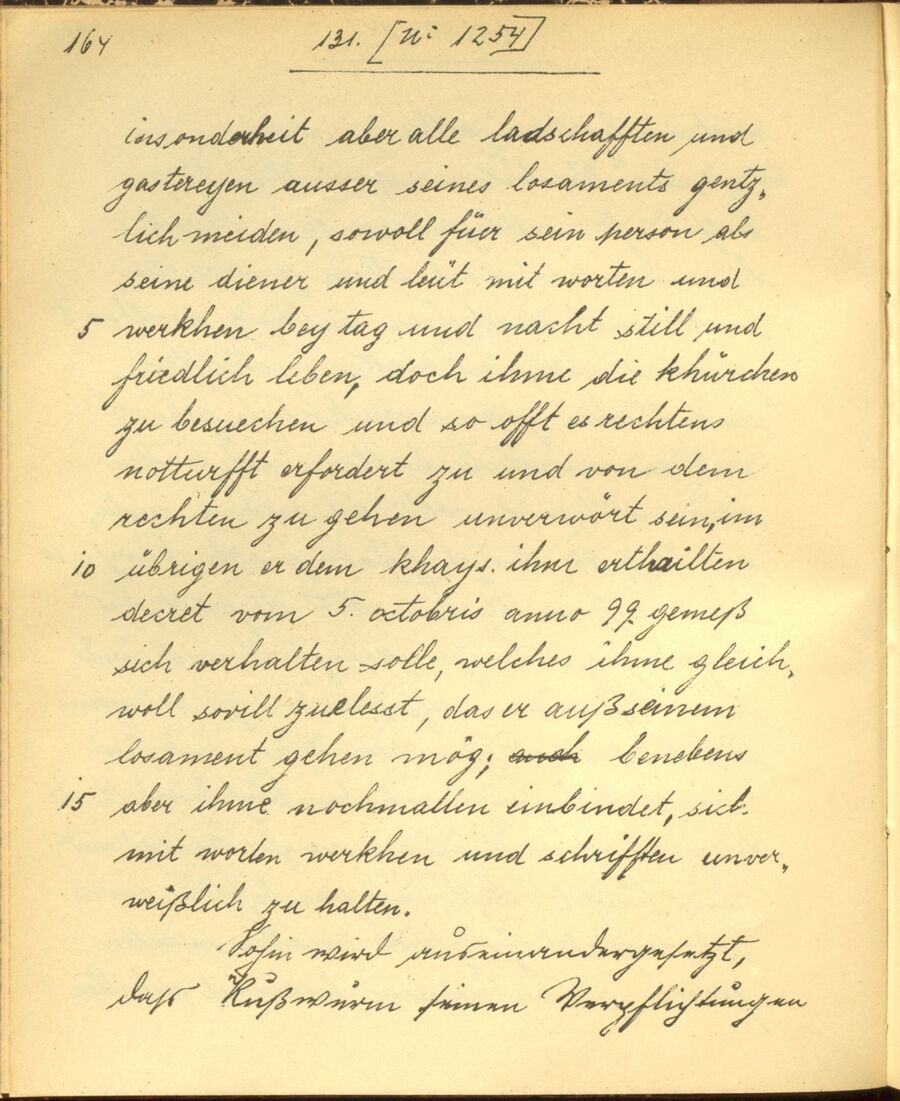 164 131. [Nº 1254]
insonderheit aber alle ladschafften und
gastereyen ausser seines losaments gentz„
lich meiden, sowoll füer sein person als
seine diener und leüt mit worten und
5 werkhen bey tag und nacht still und
friedlich leben, doch ihme die khürchen
zu besuechen und so offt es rechtens
notturfft erfordert zu und von dem
rechten zu gehen unverwört sein, im
10 übrigen er dem khays. ihm erthailten
decret vom 5. octobris anno 99 gemeß
sich verhalten solle, welches ihme gleich„
woll sovill zuelesst, das er auß seinem
losament gehen mög; auch benebens
15 aber ihme nochmallen einbindet, sich
mit worten werkhen und schrifften unver„
weißlich zu halten.
wird auseinandergesetzt,
dass Rußwurm seinen Verpflichtungen